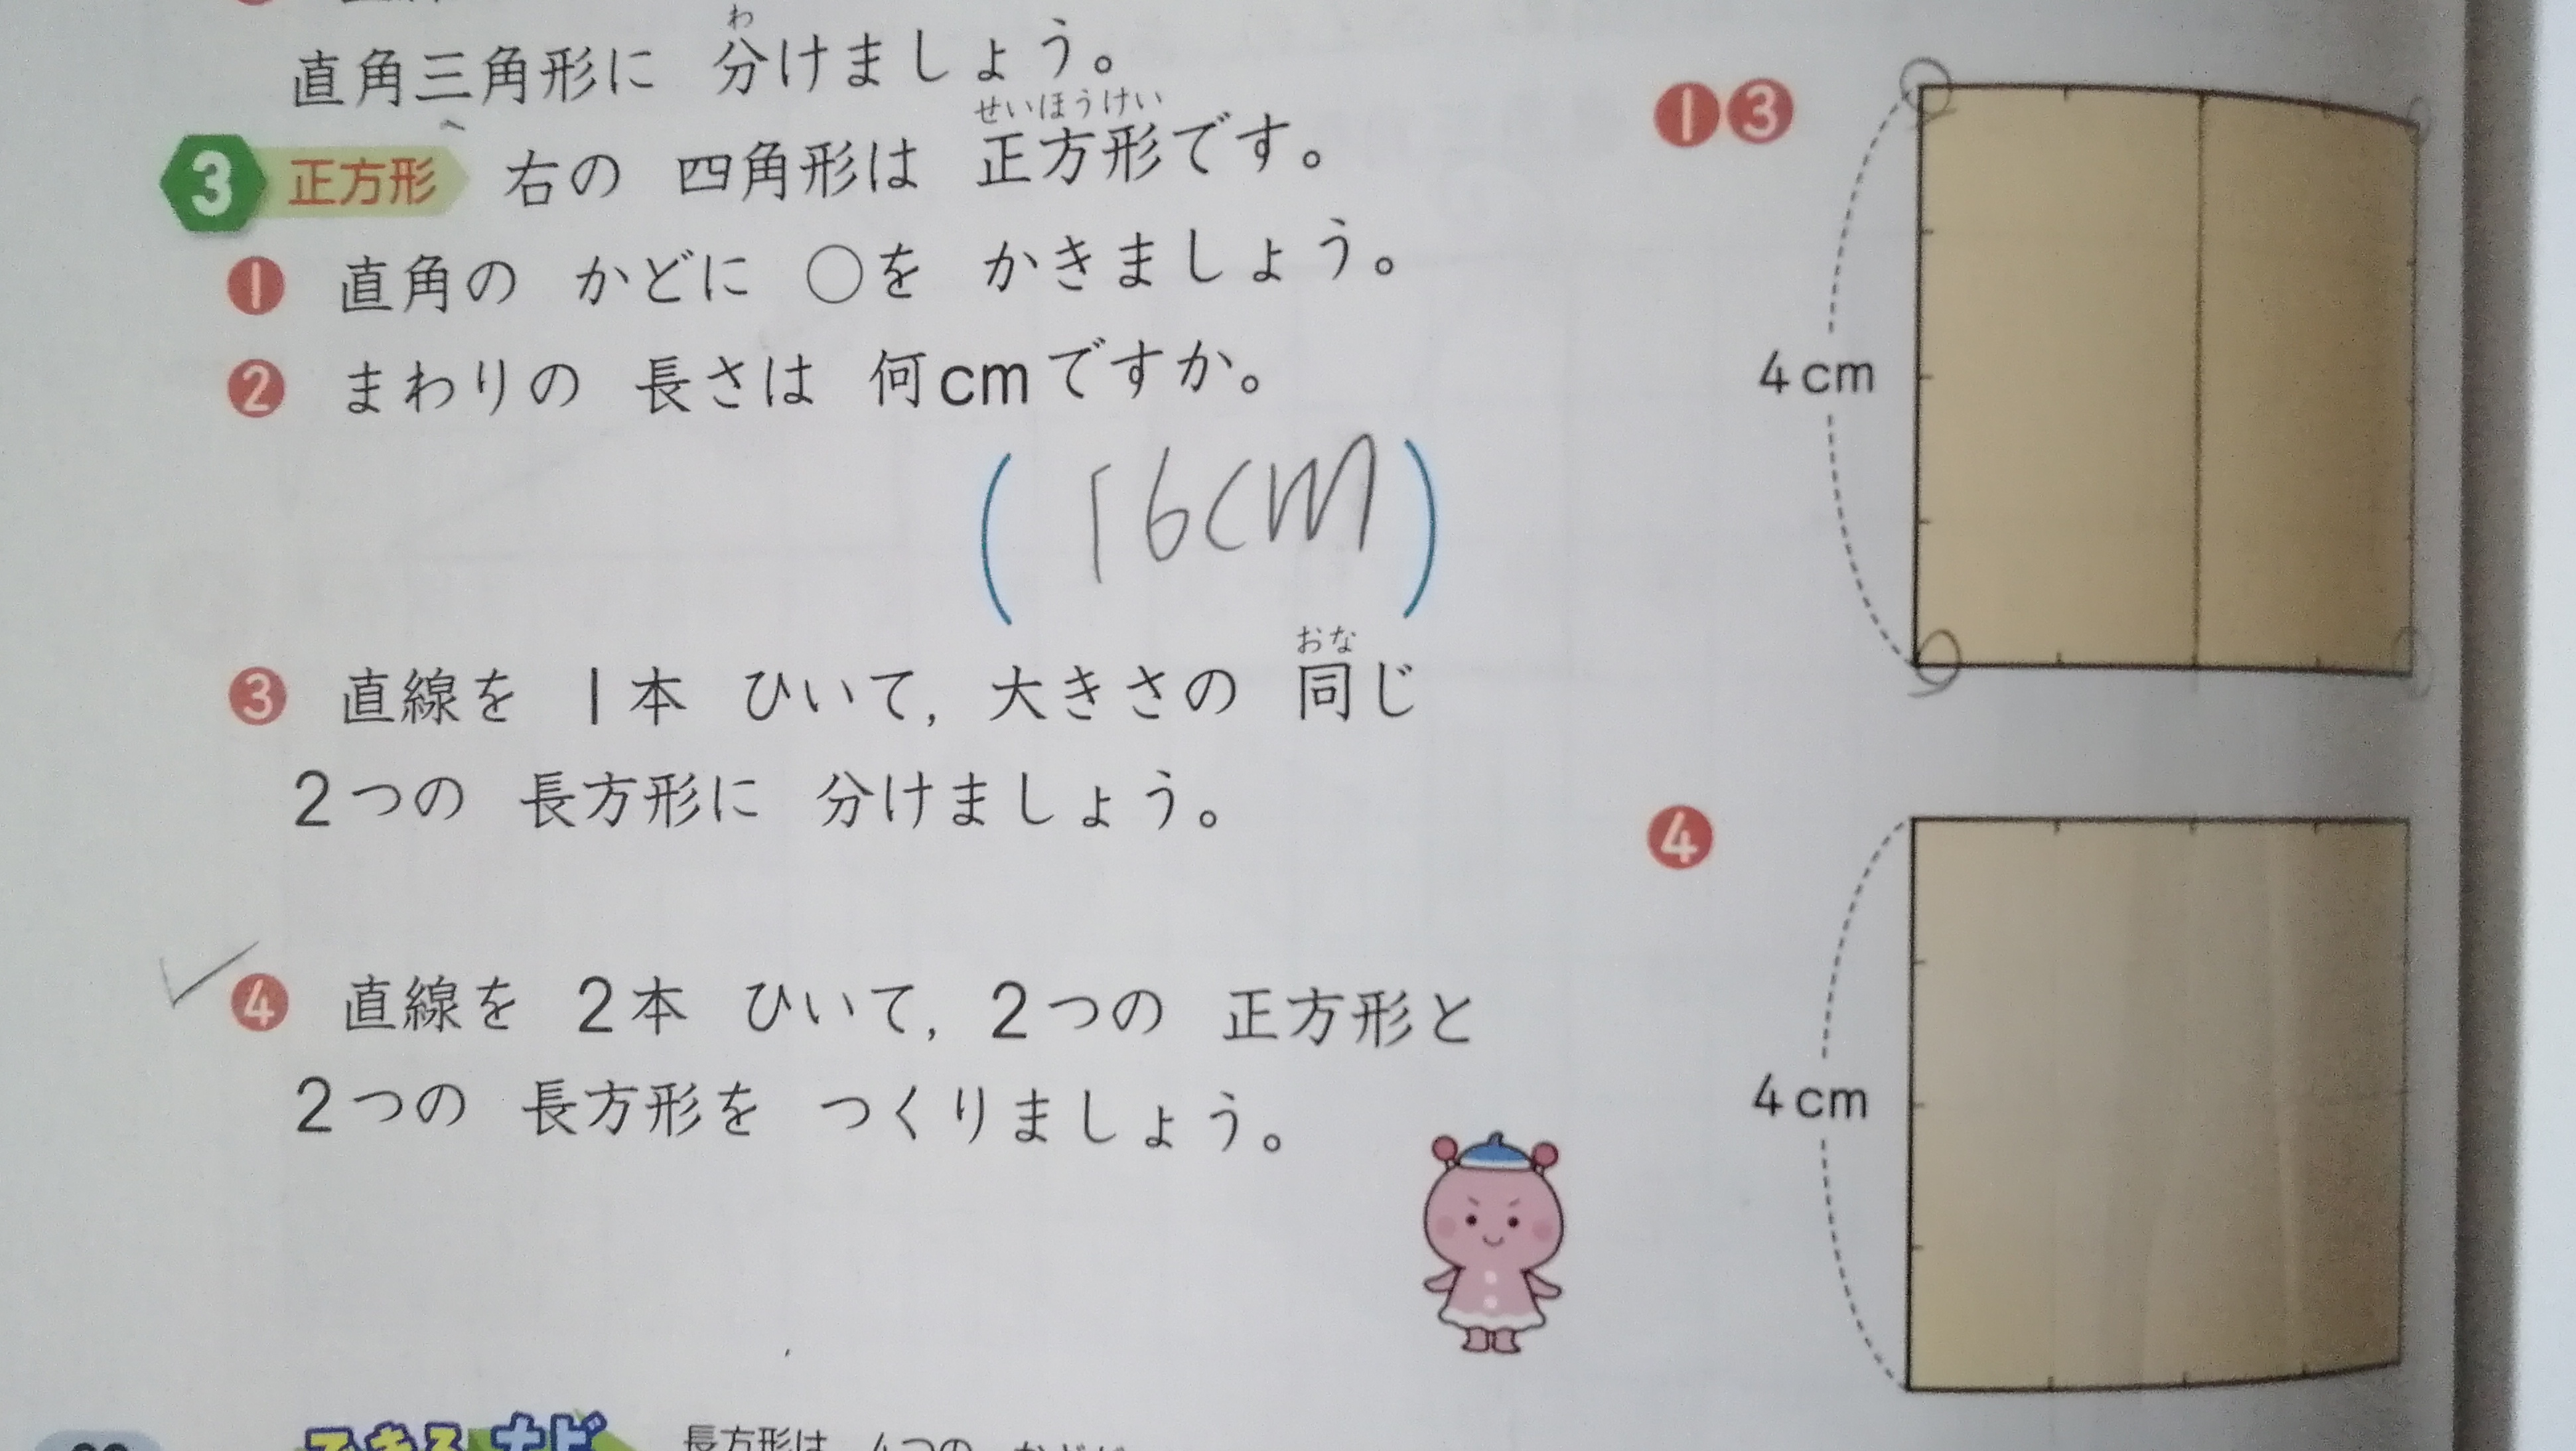 直角三角形に 分けましょう。
わ
3 正方形 右の 四角形は 正方形です。
せいほうけい
1 直角の かどに ○を かきましょう。
2 まわりの 長さは 何cmですか。
(16cm)
3 直線を 1本 ひいて, 大きさの 同じ
おな
2つの 長方形に 分けましょう。
4 直線を 2本 ひいて, 2つの 正方形と
2つの 長方形を つくりましょう。
1 3
4cm
4
4cm
長方形は 4つの